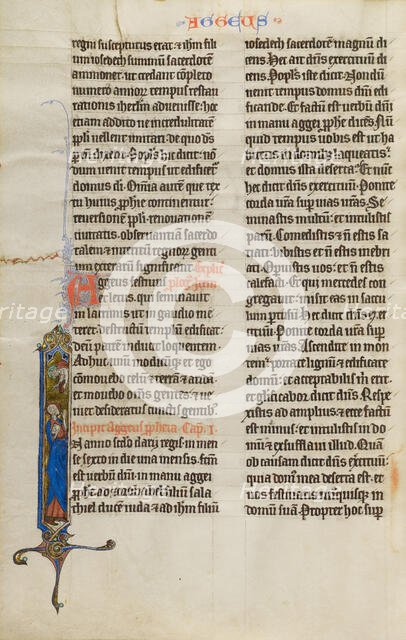 AGGEUS
regni suscepturus erat & ihm filium
iosedech summum sacerdotem
ammonet ut celant completo
numero annorum tempus restau
rationis iherusalem advenisse hoc
etiam addito ne incredulitatem
dum venit tempus ut edificetur
domus dni. Omnia autem que tex
tu huius prophete continentur
reversionem populi renovationem
civitatis observantiam sacerdo
talem & interitum regnorum gentium
externorum significant.
Aggeus festivus
& letus, qui seminavit
in lacrimis ut in gaudio me
teret destructum templum edificat
deum patrem inducit loquentem.
Adhuc unum modicum & ego
commovebo celum & terram & mare
& movebo omnes gentes & ve
niet desideratus cunctis gentibus.
Incipit Aggeus propheta. Cap. I.
In anno secundo darii regis in men
se sexto in die una mensis, factum
est verbum domini in manu aggei
prophete ad zorobabel filium sala
thiel ducem iuda & ad ihm filium
iosedech sacerdotem magnum di
cens. Hec ait dns exercituum di
cens. Popls iste dicit. Nondum
venit tempus domus dni edifi
cande. Et factum est verbum dni
in manu aggei prophe dicens. Nun
quid tempus vobis est ut ha
bitetis in domibus laqueatis:
et domus ista deserta? Et nunc
hec dicit dns exercituum. Ponite
corda vestra super vias vestras. Se
minastis multum & intulistis
parum. Comedistis & non estis sa
tiati: bibistis & non estis inebri
ati. Operuistis vos: et non estis
calefacti. Et qui mercedes con
gregavit: misit eas in saccum
pertusum. Hec dicit dns exer
cituum. Ponite corda vestra super
vias vestras. Ascendite in mon
tem, portate lignum & edificate
domum: et acceptabilis michi erit
et glorificabor dicit dns. Resp
existis ad amplius & ecce factum
est minus: et intulistis in do
mum & exsufflavi illud. Quam
ob causam dicit dns exercituum
quia domus mea deserta est. et
vos festinatis unusquisque in
domum suam. Propter hoc super